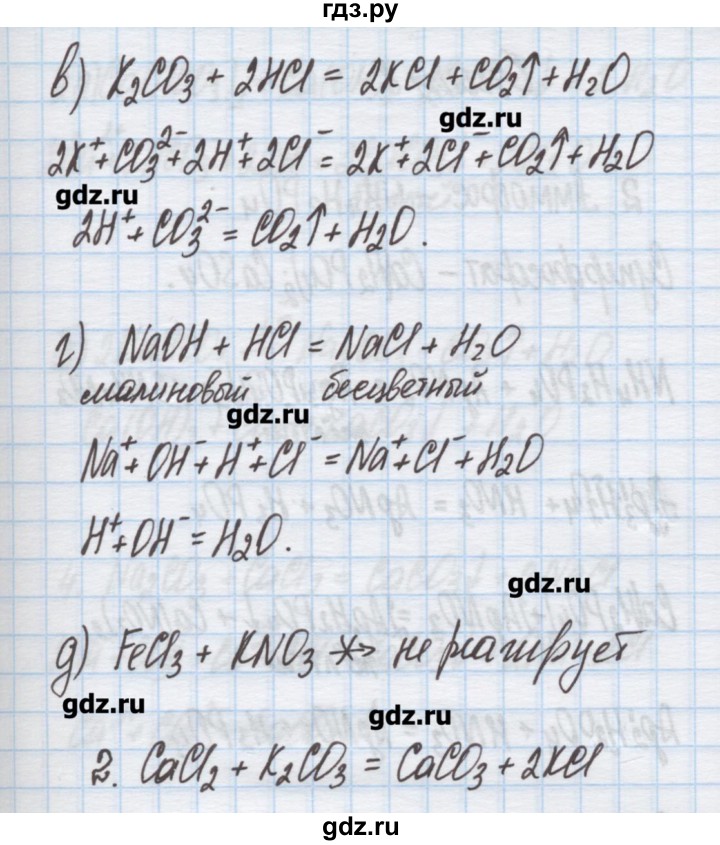 гдз.ру
в) K₂CO₃ + 2HCl = 2KCl + CO₂↑ + H₂O
gdz.ru
2K⁺ + CO₃²⁻ + 2H⁺ + 2Cl⁻ = 2K⁺ + 2Cl⁻ + CO₂↑ + H₂O
gdz.ru
2H⁺ + CO₃²⁻ = CO₂↑ + H₂O.
г) NaOH + HCl = NaCl + H₂O
малиновый бесцветный
gdz.ru
Na⁺ + OH⁻ + H⁺ + Cl⁻ = Na⁺ + Cl⁻ + H₂O
H⁺ + OH⁻ = H₂O.
gdz.ru
д) FeCl₃ + KNO₃ ⇸ не реагирует
gdz.ru
gdz.ru
2. CaCl₂ + K₂CO₃ = CaCO₃ + 2KCl
gdz.ru